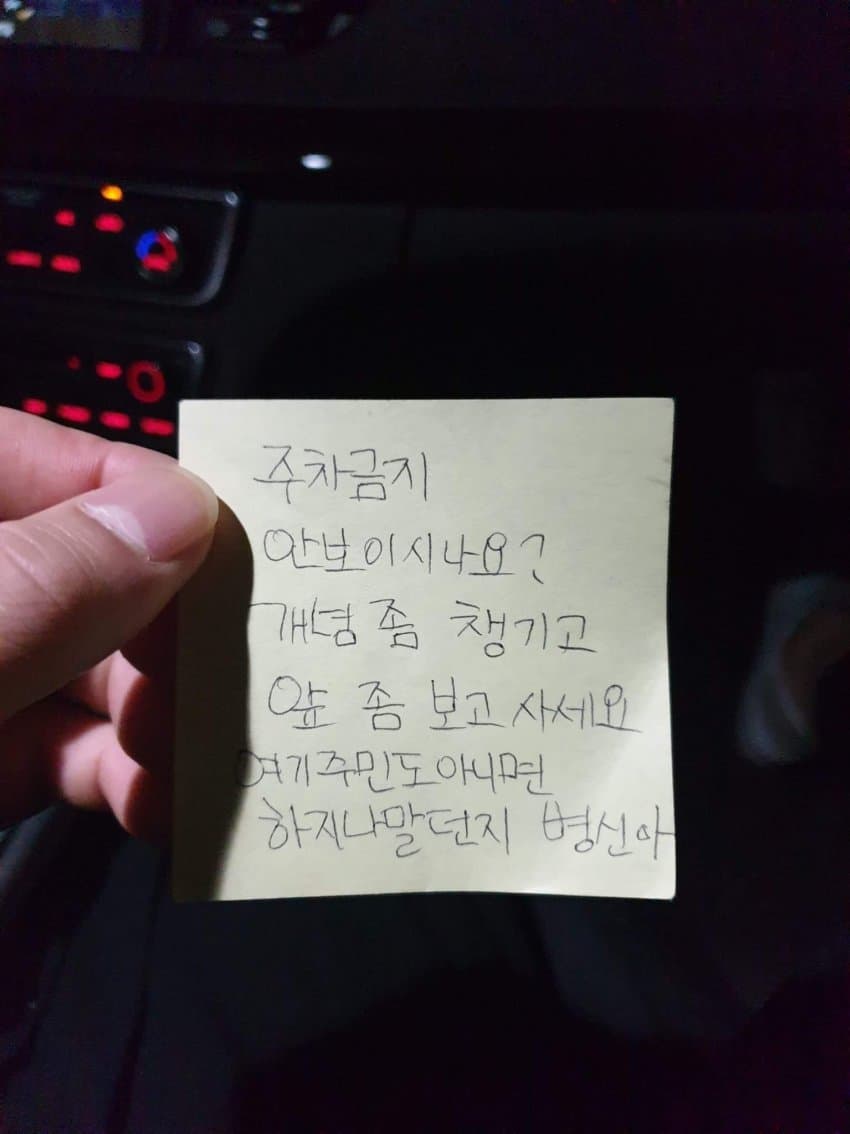 주차금지
안보이시나요?
개념 좀 챙기고
앞 좀 보고 사세요
여기주민도아니면
하지나말던지 병신아